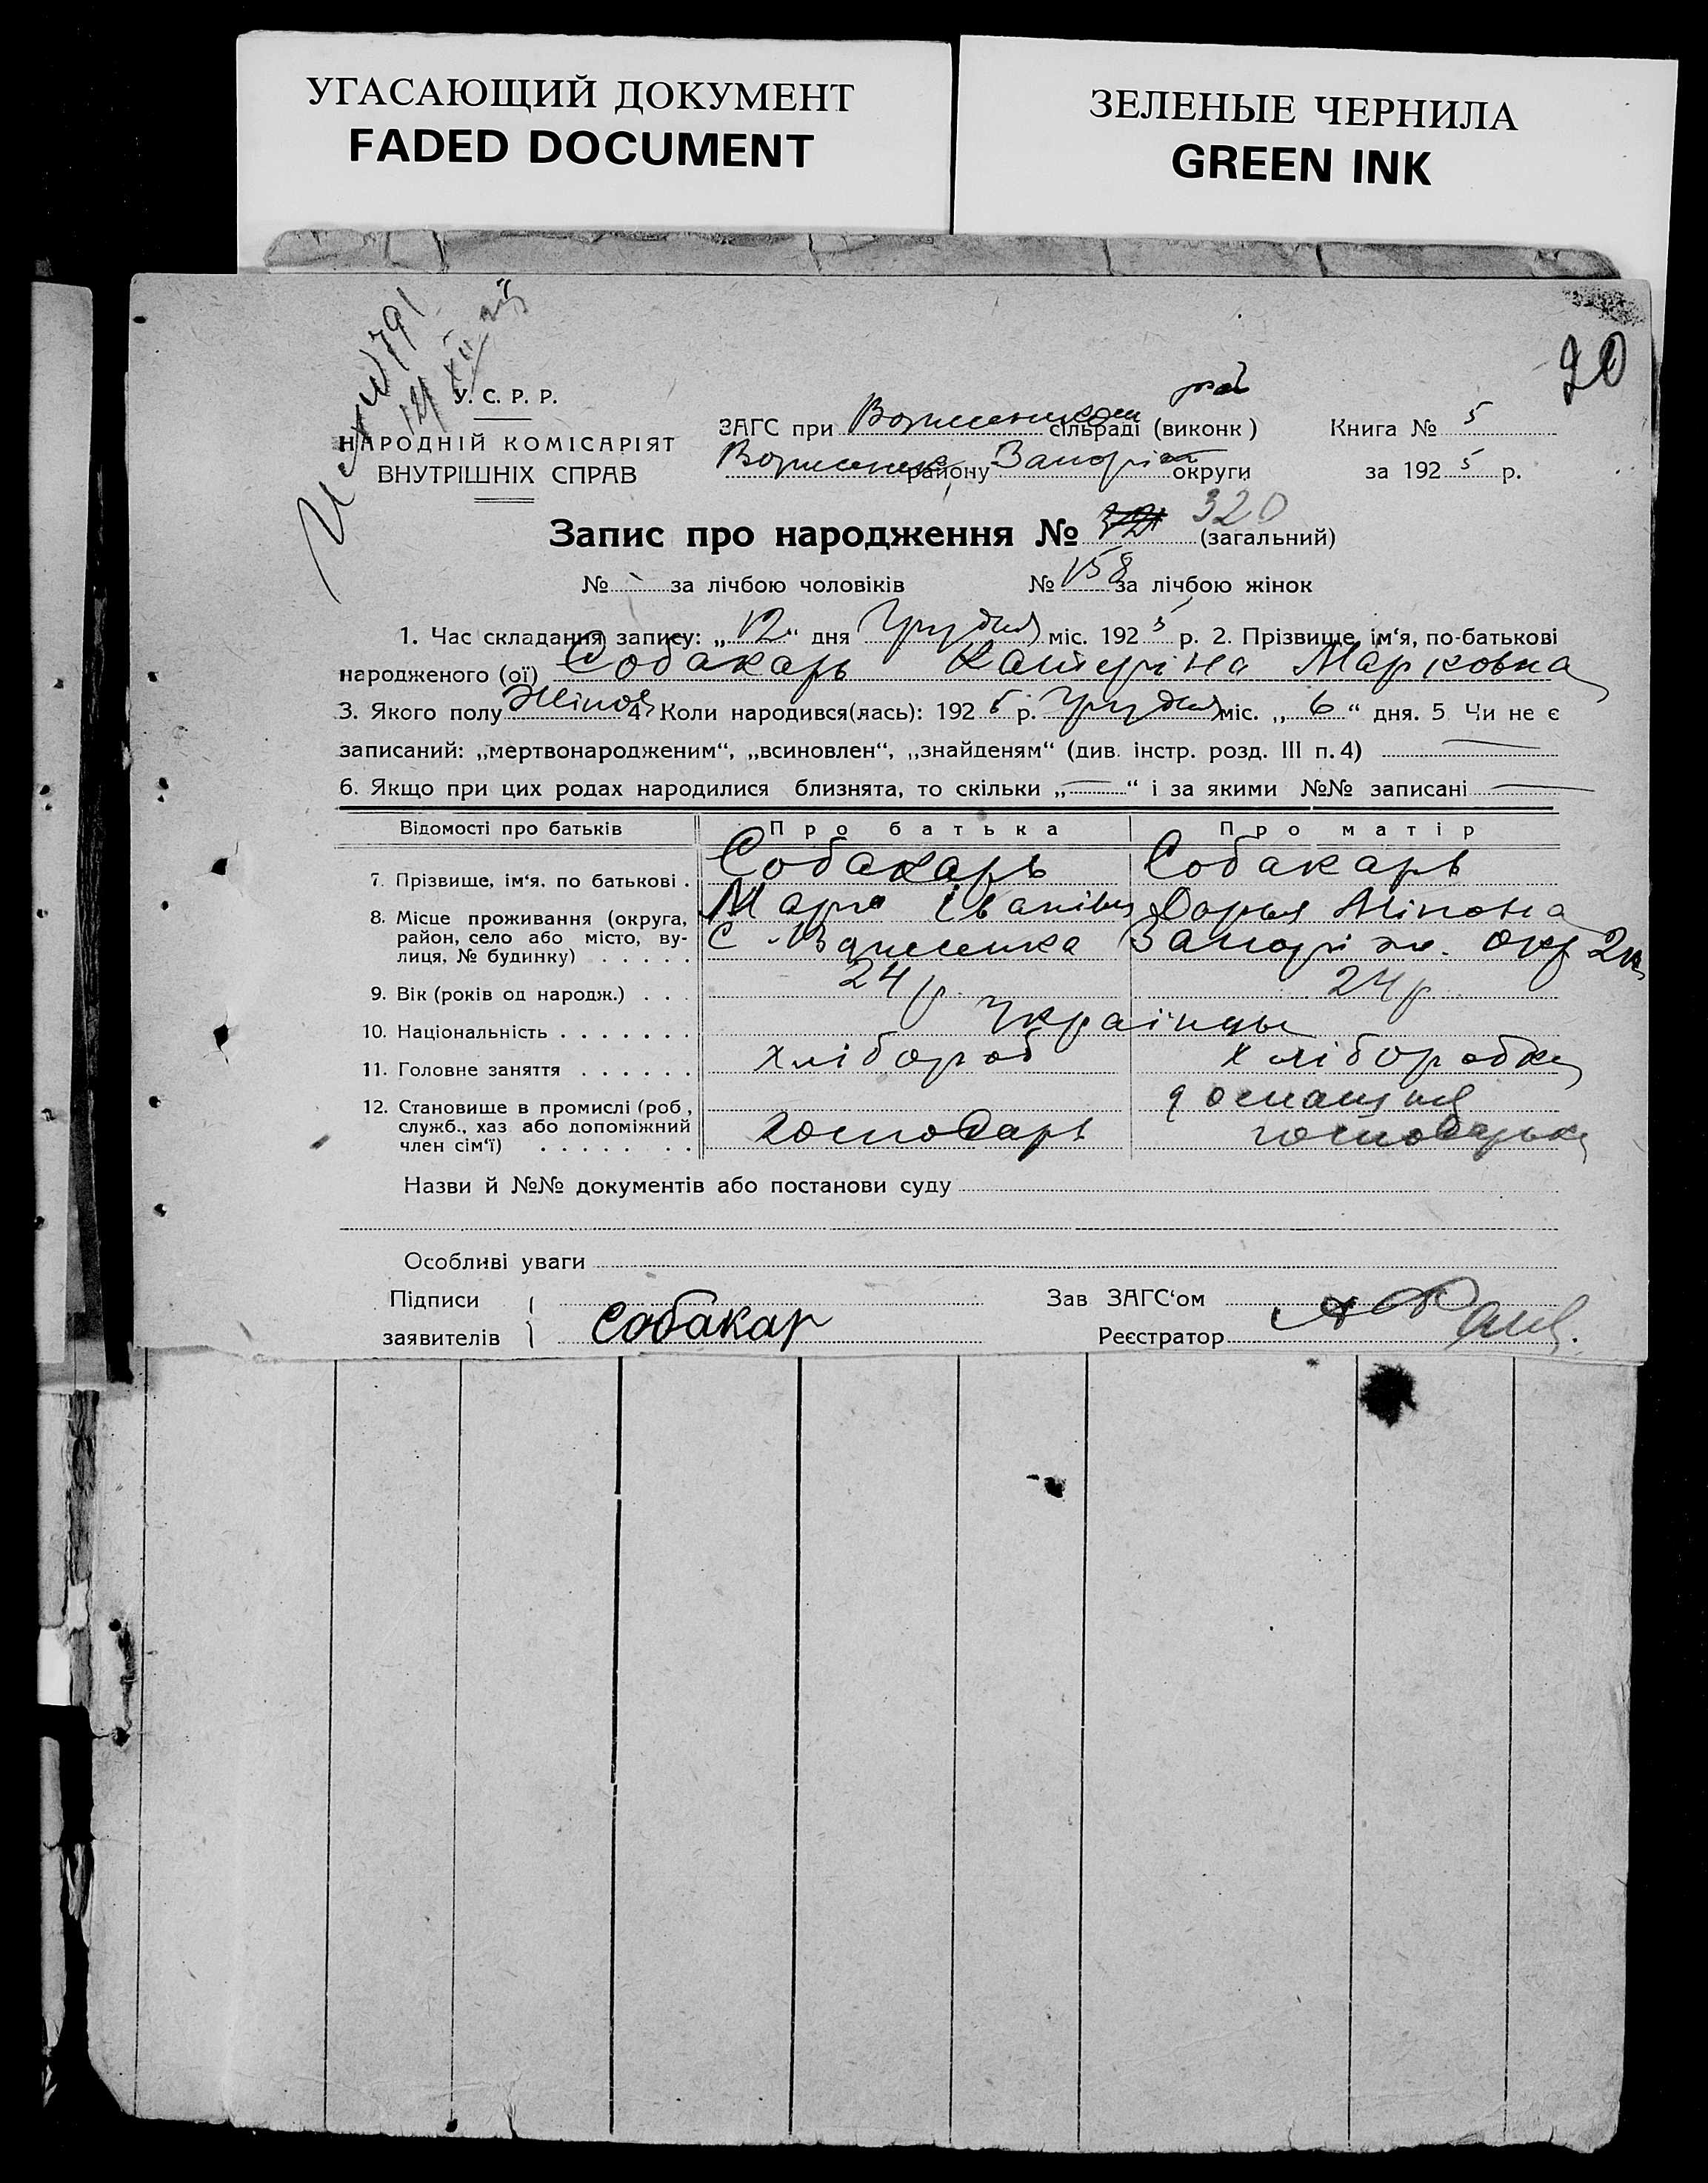 УГАСАЮЩИЙ ДОКУМЕНТ
FADED DOCUMENT
ЗЕЛЕНЫЕ ЧЕРНИЛА
GREEN INK
20
У. С. Р. Р.
НАРОДНІЙ КОМІСАРІЯТ
ВНУТРІШНІХ СПРАВ
ЗАГС при сільраді (виконк) Книга № 5
району округи за 1925 р.
Запис про народження № 320 (загальний)
№ за лічбою чоловіків № 158 за лічбою жінок
1. Час складання запису: „12“ дня Грудня міс. 1925 р. 2. Прізвище, ім‘я, по-батькові
народженого (ої) Собакарь Катеріна Марковна
3. Якого полу Жіноч 4. Коли народився(лась): 1925 р. Грудня міс. „6“ дня. 5 Чи не є
записаний: „мертвонародженим“, „всиновлен“, „знайденям“ (див. інстр. розд. III п. 4) —
6. Якщо при цих родах народилися близнята, то скільки „—“ і за якими №№ записані —
Відомості про батьків Про батька Про матір
7. Прізвище, ім‘я. по батькові . Собакарь Собакарь
Марко Іванівич Дарья
8. Місце проживання (округа,
район, село або місто, ву-
лиця, № будинку) . . . . . С. Запоріж. окр
9. Вік (років од народж.) . . . 24 р 24 р
10. Національність . . . . . . . Українцы
11. Головне заняття . . . . . . хлібороб хліборобка
12. Становище в промислі (роб.,
служб., хаз або допоміжний
член сім‘ї) . . . . . . . господарь господарька
Назви й №№ документів або постанови суду
Особливі уваги
Підписи
заявителів Собакар
Зав ЗАГС‘ом
Реєстратор